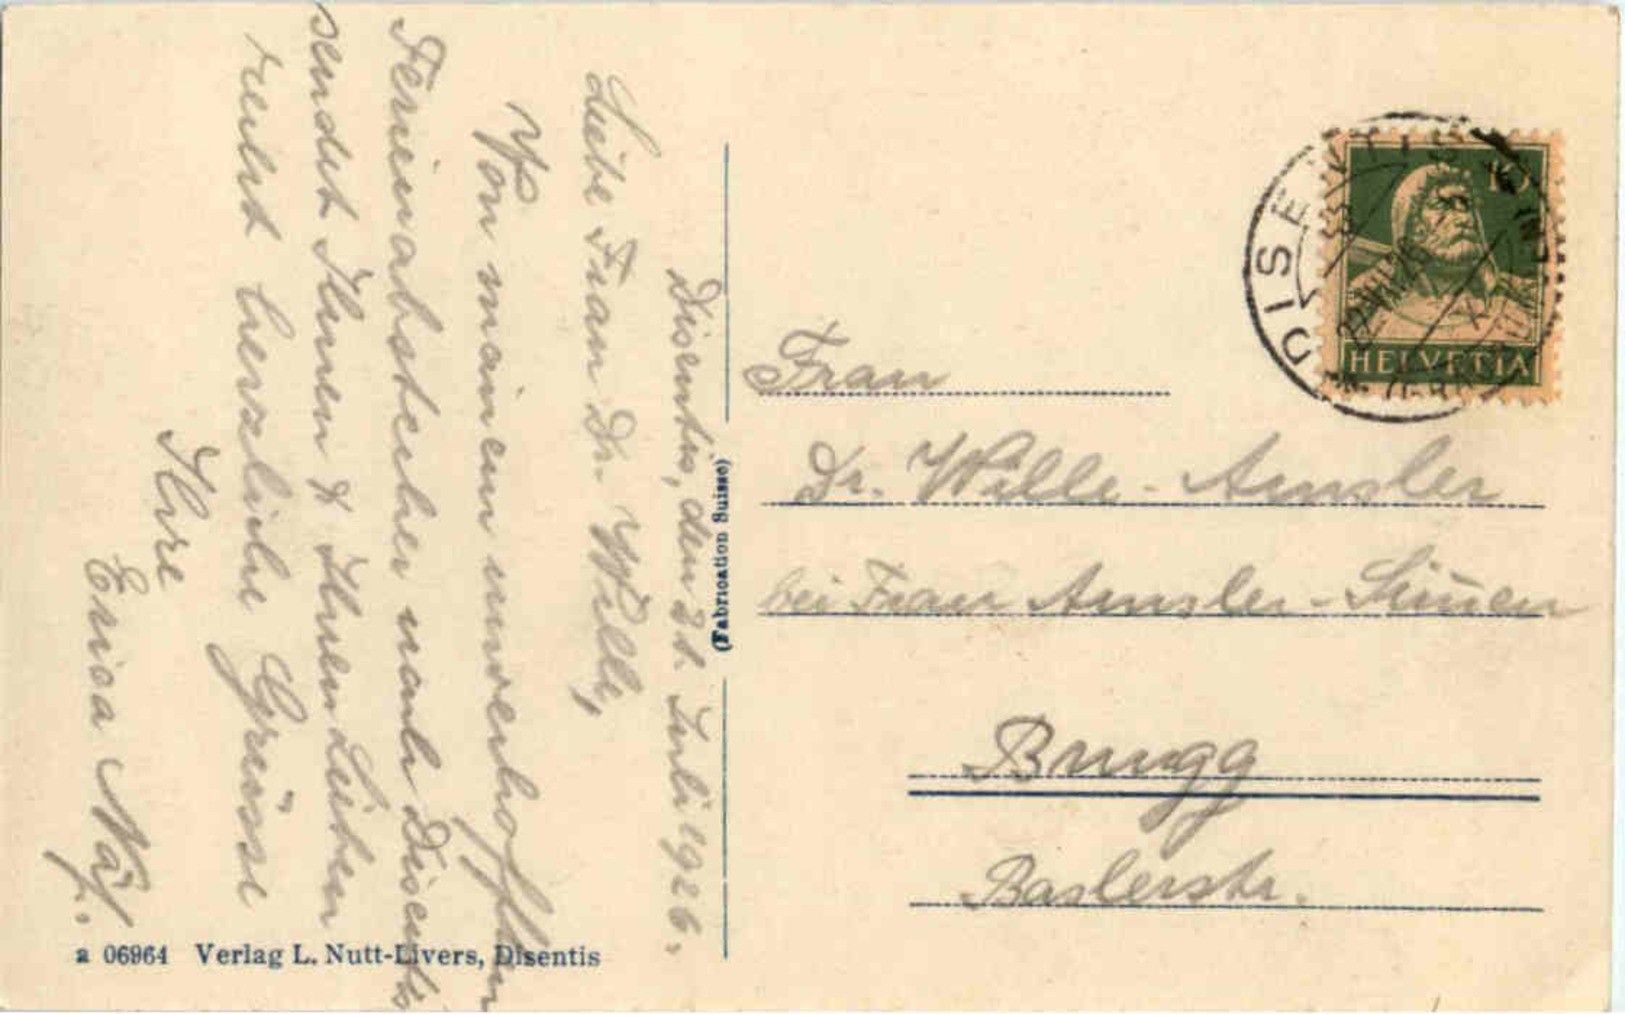 Disentis, den 21. Juli 1926.
Liebe Frau Dr. Wille,
Von meinem unverhofften
Ferienabstecher nach Disentis
sendet Ihnen & Ihren Lieben
recht herzliche Grüsse
Ihre
Erica Näf.
a 06964 Verlag L. Nutt-Livers, Disentis
(Fabrication Suisse)
DISENTIS
22.VII.26
10
HELVETIA
Frau
Dr. Wille-Amsler
bei Frau Amsler-
Brugg
Baslerstr.